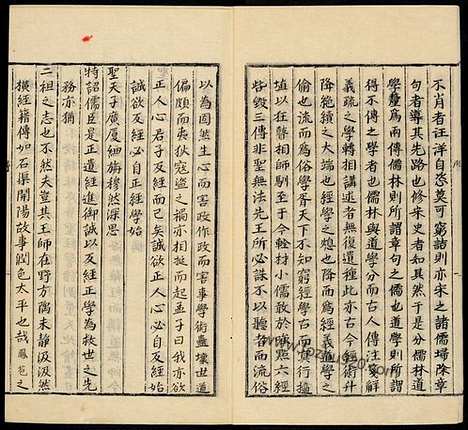 不肖者汪洋自恣莫可窮詰則亦宋之諸儒掃除章
句者導其先路也修宋史者知其然于是分儒林道
學釐為兩傳儒林則所謂章句之儒也道學則所謂
得不傳之學者也儒林與道學分而古人傳注箋解
義疏之學轉相講述者無復遺種此亦古今經術升
降絕續之大端也經學之熄也降而為經義道學之
偷也流而為俗學胥天下不知窮經學古而冥行擿
埴以狂瞽相師馴至于今輇材小儒敢於嗤點六經
呰毀三傳非聖無法先王所必誅不以聽者而流俗
以為固然生心而害政作政而害事學術蠱壞世道
偏頗而夷狄寇盜之禍亦相挺而起孟子曰我亦欲
正人心君子反經而已矣誠欲正人心必自反經始
誠欲反經必自正經學始
聖天子廣廈細旃穆然深思
特詔儒臣是正遺經進御誠以反經正學為救世之先
務亦猶
二祖之志也不然夫豈其王師在野方隅未靜汲汲然
橫經籍傳如石渠開陽故事潤色太平也哉鳳苞之